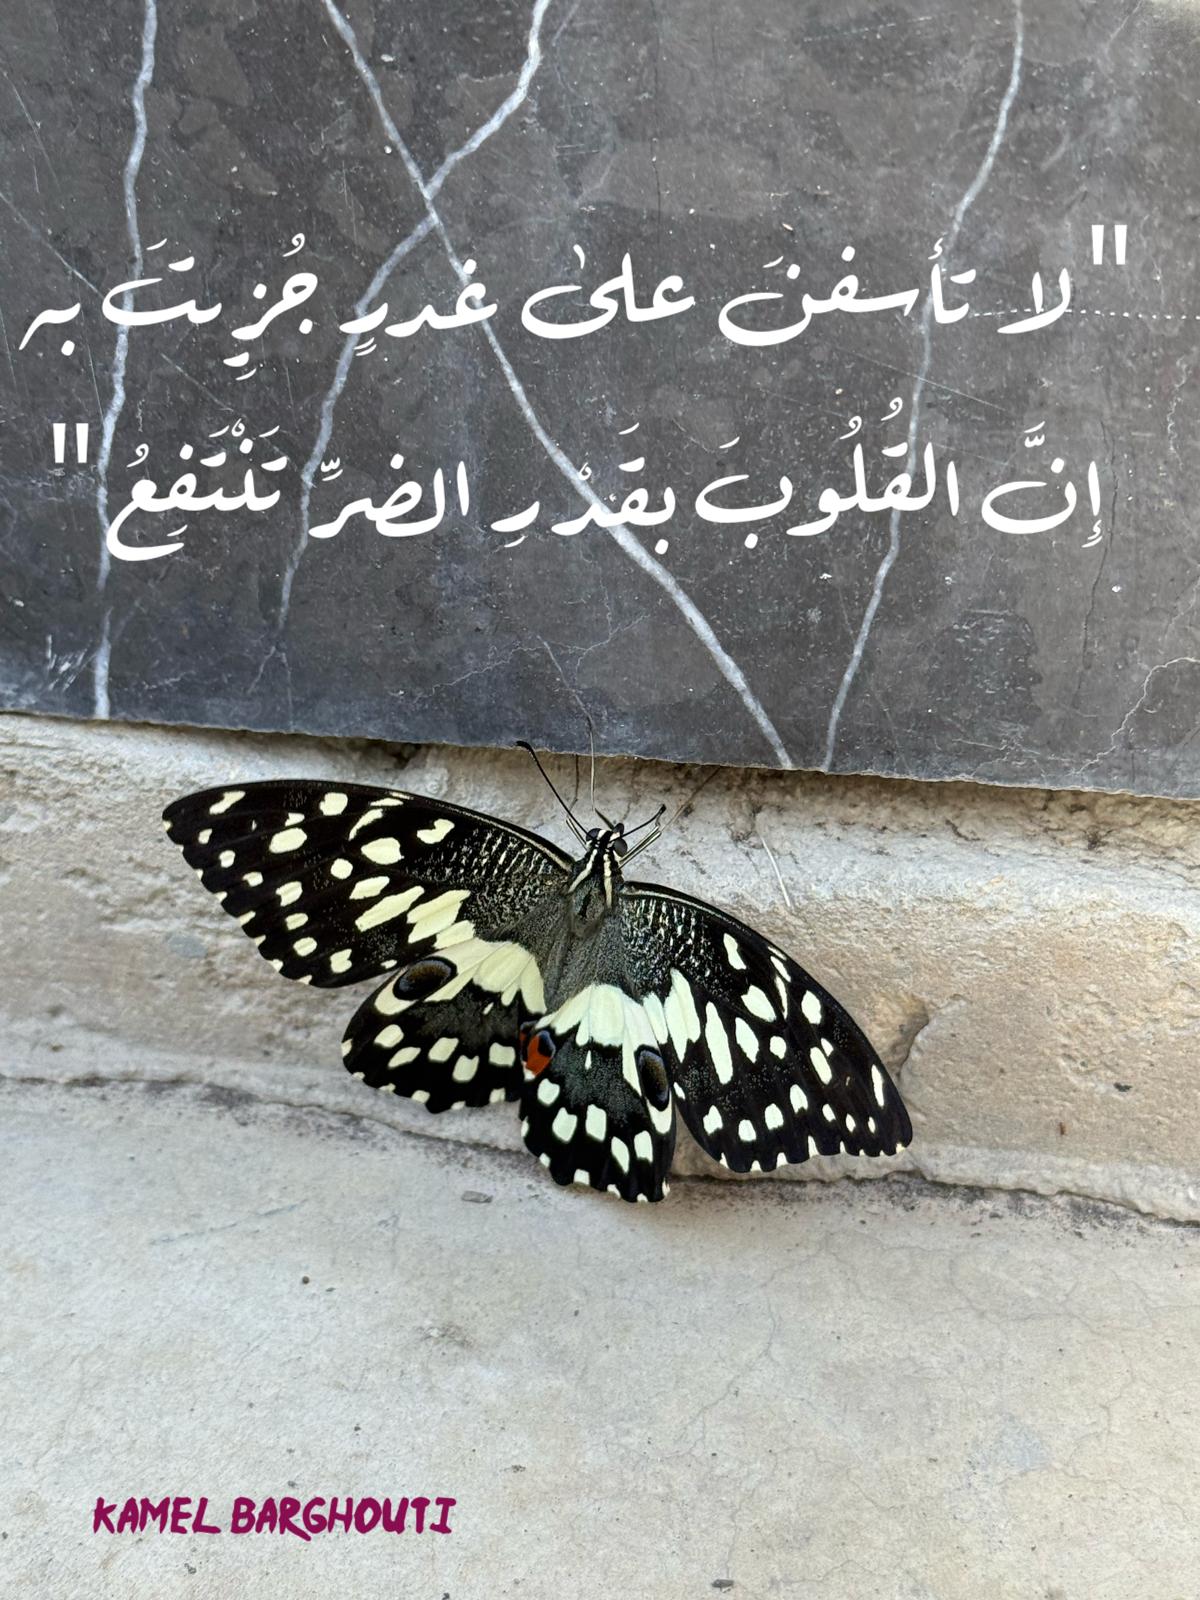 "لا تأسفنَ علىٰ غدرٍ جُزِيتَ به
إِنَّ القُلُوبَ بقَدْرِ الضرِّ تَنْتَفِعُ"
KAMEL BARGHOUTI